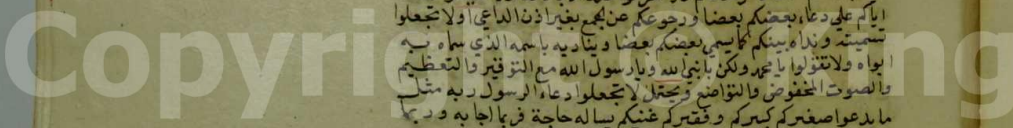 اياكم على دعاء بعضكم بعضا ورجوعكم عن المجمع بغير اذن الداعي او لا تجعلوا
تسميته ونداه بينكم كما يسمي بعضكم بعضا ويناديه باسمه الذي سماه به
ابواه ولا تقولوا يا محمد ولكن يا نبي الله ويا رسول الله مع التوقير والتعظيم
والصوت المخفوض والتواضع ويحتمل لا تجعلوا دعاء الرسول ربه مثل
ما يدعوا صغيركم كبيركم وفقيركم غنيكم يساله حاجة فربما اجابه وربما
Copyright © King